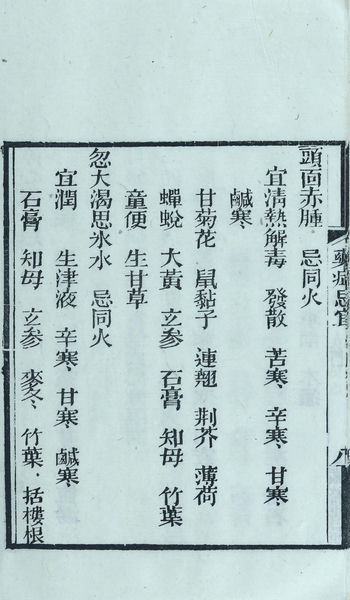 頭面赤腫　忌同火
宜清熱解毒　發散　苦寒　辛寒　甘寒
鹹寒
甘菊花　鼠黏子　連翹　荆芥　薄荷
蟬蛻　大黃　玄参　石膏　知母　竹葉
童便　生甘草
忽大渴思氷水　忌同火
宜潤　生津液　辛寒　甘寒　鹹寒
石膏　知母　玄参　麥冬　竹葉・括樓根